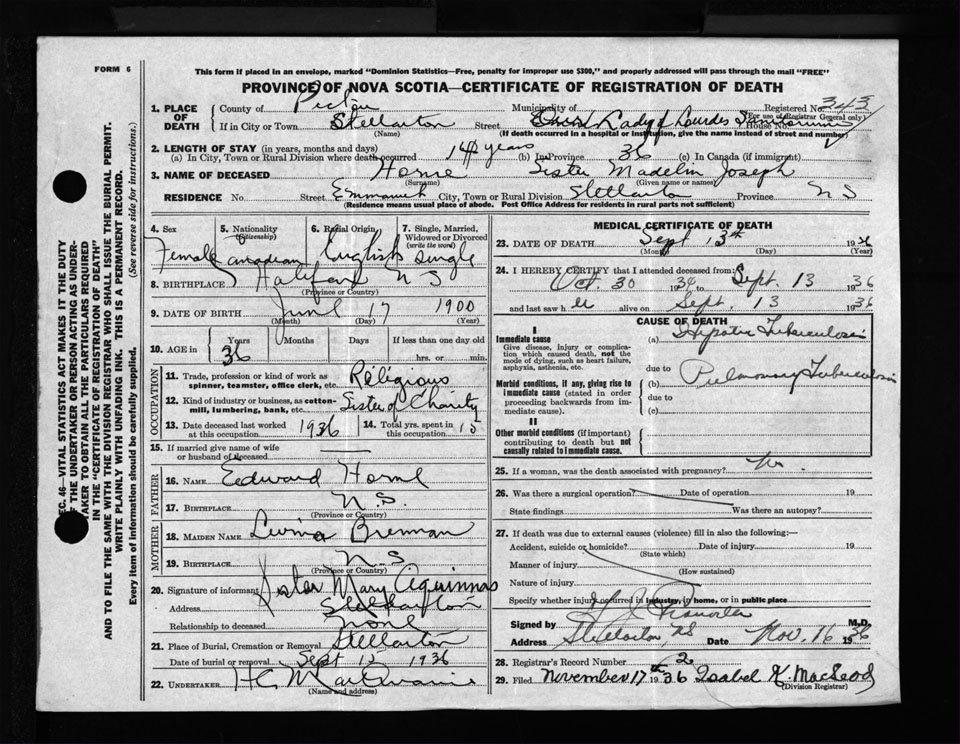 FORM 6
This form if placed in an envelope, marked "Dominion Statistics—Free, penalty for improper use $300," and properly addressed will pass through the mail "FREE"
PROVINCE OF NOVA SCOTIA—CERTIFICATE OF REGISTRATION OF DEATH
1. PLACE OF DEATH
County of Pictou Municipality of Registered No. 343
(For use of Registrar General only)
If in City or Town Stellarton Street Lady of Lourdes Sanitorium House No.
(Name) (If death occurred in a hospital or institution, give the name instead of street and number)
2. LENGTH OF STAY (in years, months and days)
(a) In City, Town or Rural Division where death occurred 14 years (b) In Province 36 (c) In Canada (if immigrant)
3. NAME OF DECEASED Horne Sister Madelin Joseph
(Surname) (Given name or names)
RESIDENCE No. Street City, Town or Rural Division Stellarton Province N S
(Residence means usual place of abode. Post Office Address for residents in rural parts not sufficient)
4. Sex 5. Nationality (Citizenship) 6. Racial Origin 7. Single, Married, Widowed or Divorced (write the word)
Female Canadian English Single
8. BIRTHPLACE Halifax N S
(Province or Country)
9. DATE OF BIRTH June 17 1900
(Month) (Day) (Year)
10. AGE in Years Months Days If less than one day old
36 hrs. or min.
OCCUPATION
11. Trade, profession or kind of work as spinner, teamster, office clerk, etc. Religious
12. Kind of industry or business, as cotton-mill, lumbering, bank, etc. Sister of Charity
13. Date deceased last worked at this occupation 1936 14. Total yrs. spent in this occupation 15
15. If married give name of wife or husband of deceased
FATHER
16. NAME Edward Horne
17. BIRTHPLACE N.S.
(Province or Country)
MOTHER
18. MAIDEN NAME Brennan
19. BIRTHPLACE N S
(Province or Country)
20. Signature of informant Sister Mary Aquinnas
Address Stellarton
Relationship to deceased None
21. Place of Burial, Cremation or Removal Stellarton
Date of burial or removal Sept 1936
22. UNDERTAKER H C
(Name and address)
MEDICAL CERTIFICATE OF DEATH
23. DATE OF DEATH Sept 13th 1936
(Month) (Day) (Year)
24. I HEREBY CERTIFY that I attended deceased from:
Oct. 30 1934 to Sept. 13 1936
and last saw h er alive on Sept. 13 1936
CAUSE OF DEATH
I
Immediate cause (a) Tuberculosis
Give disease, injury or complication which caused death, not the mode of dying, such as heart failure, asphyxia, asthenia, etc.
due to
Morbid conditions, if any, giving rise to immediate cause (stated in order proceeding backwards from immediate cause). (b) Pulmonary Tuberculosis
due to
(c)
II
Other morbid conditions (if important) contributing to death but not causally related to immediate cause.
25. If a woman, was the death associated with pregnancy? No
26. Was there a surgical operation? Date of operation 19
State findings Was there an autopsy?
27. If death was due to external causes (violence) fill in also the following:—
Accident, suicide or homicide? Date of injury 19
(State which)
Manner of injury
(How sustained)
Nature of injury
Specify whether injury occurred in industry, in home, or in public place
Signed by M.D.
Address Stellarton NS Date Nov. 16 1936
28. Registrar's Record Number 2
29. Filed November 17th 1936 Isabel K. MacLeod
(Division Registrar)
SEC. 46—VITAL STATISTICS ACT MAKES IT THE DUTY
OF THE UNDERTAKER OR PERSON ACTING AS UNDER-
TAKER TO OBTAIN ALL THE PARTICULARS REQUIRED
IN THE "CERTIFICATE OF REGISTRATION OF DEATH"
AND TO FILE THE SAME WITH THE DIVISION REGISTRAR WHO SHALL ISSUE THE BURIAL PERMIT.
WRITE PLAINLY WITH UNFADING INK. THIS IS A PERMANENT RECORD.
Every item of information should be carefully supplied. (See reverse side for instructions.)